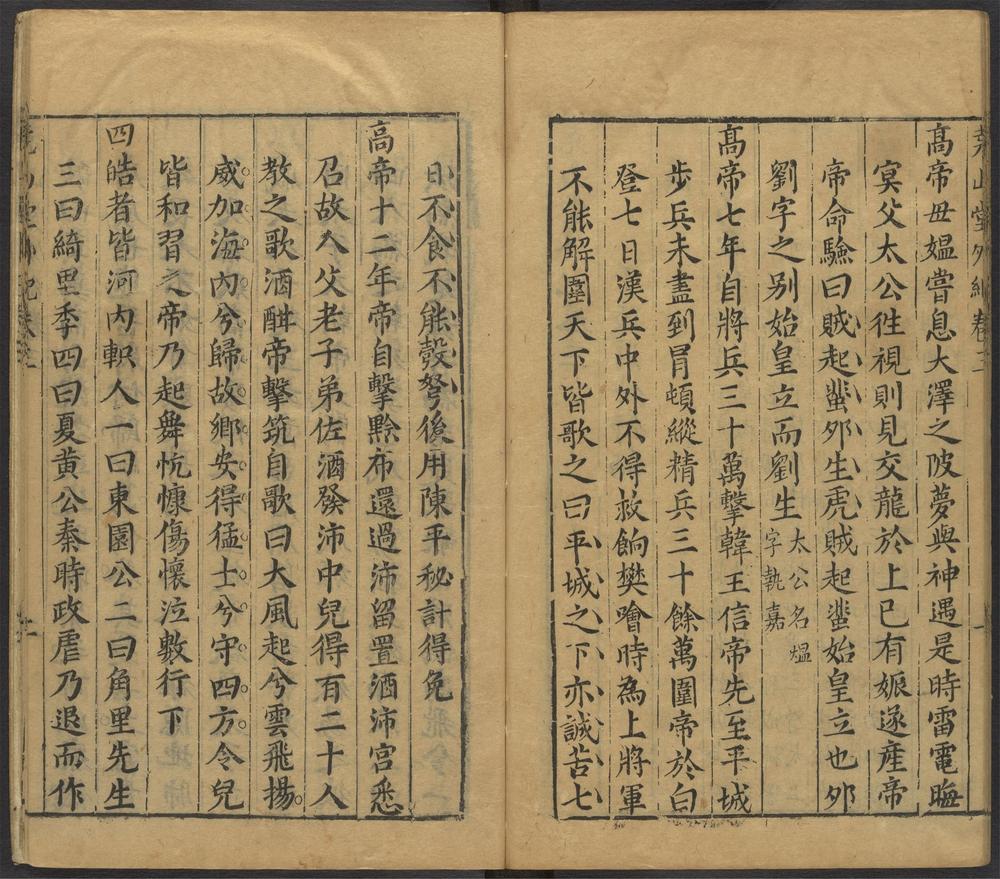 堯山堂外紀卷三
髙帝毋媼嘗息大澤之陂夢與神遇是時雷電晦
冥父太公徃視則見交龍於上巳有娠遂産帝
帝命驗曰賊起蜚夘生虎賊起蜚始皇立也夘
劉字之别始皇立而劉生太公名熅字執嘉
髙帝七年自將兵三十萬擊韓王信帝先至平城
步兵未盡到冐頓縱精兵三十餘萬圍帝於白
登七日漢兵中外不得救餉樊噲時為上將軍
不能解圍天下皆歌之曰平城之下亦誠苦七
日不食不能彀弩後用陳平秘計得免
高帝十二年帝自擊黥布還過沛留置酒沛宮悉
召故人父老子弟佐酒發沛中兒得百二十人
教之歌酒酣帝擊筑自歌曰大風起兮雲飛揚
威加海內兮歸故鄉安得猛士兮守四方令兒
皆和習之帝乃起舞忼慷傷懷泣數行下
四皓者皆河內軹人一曰東園公二曰角里先生
三曰綺里季四曰夏黄公秦時政虐乃退而作